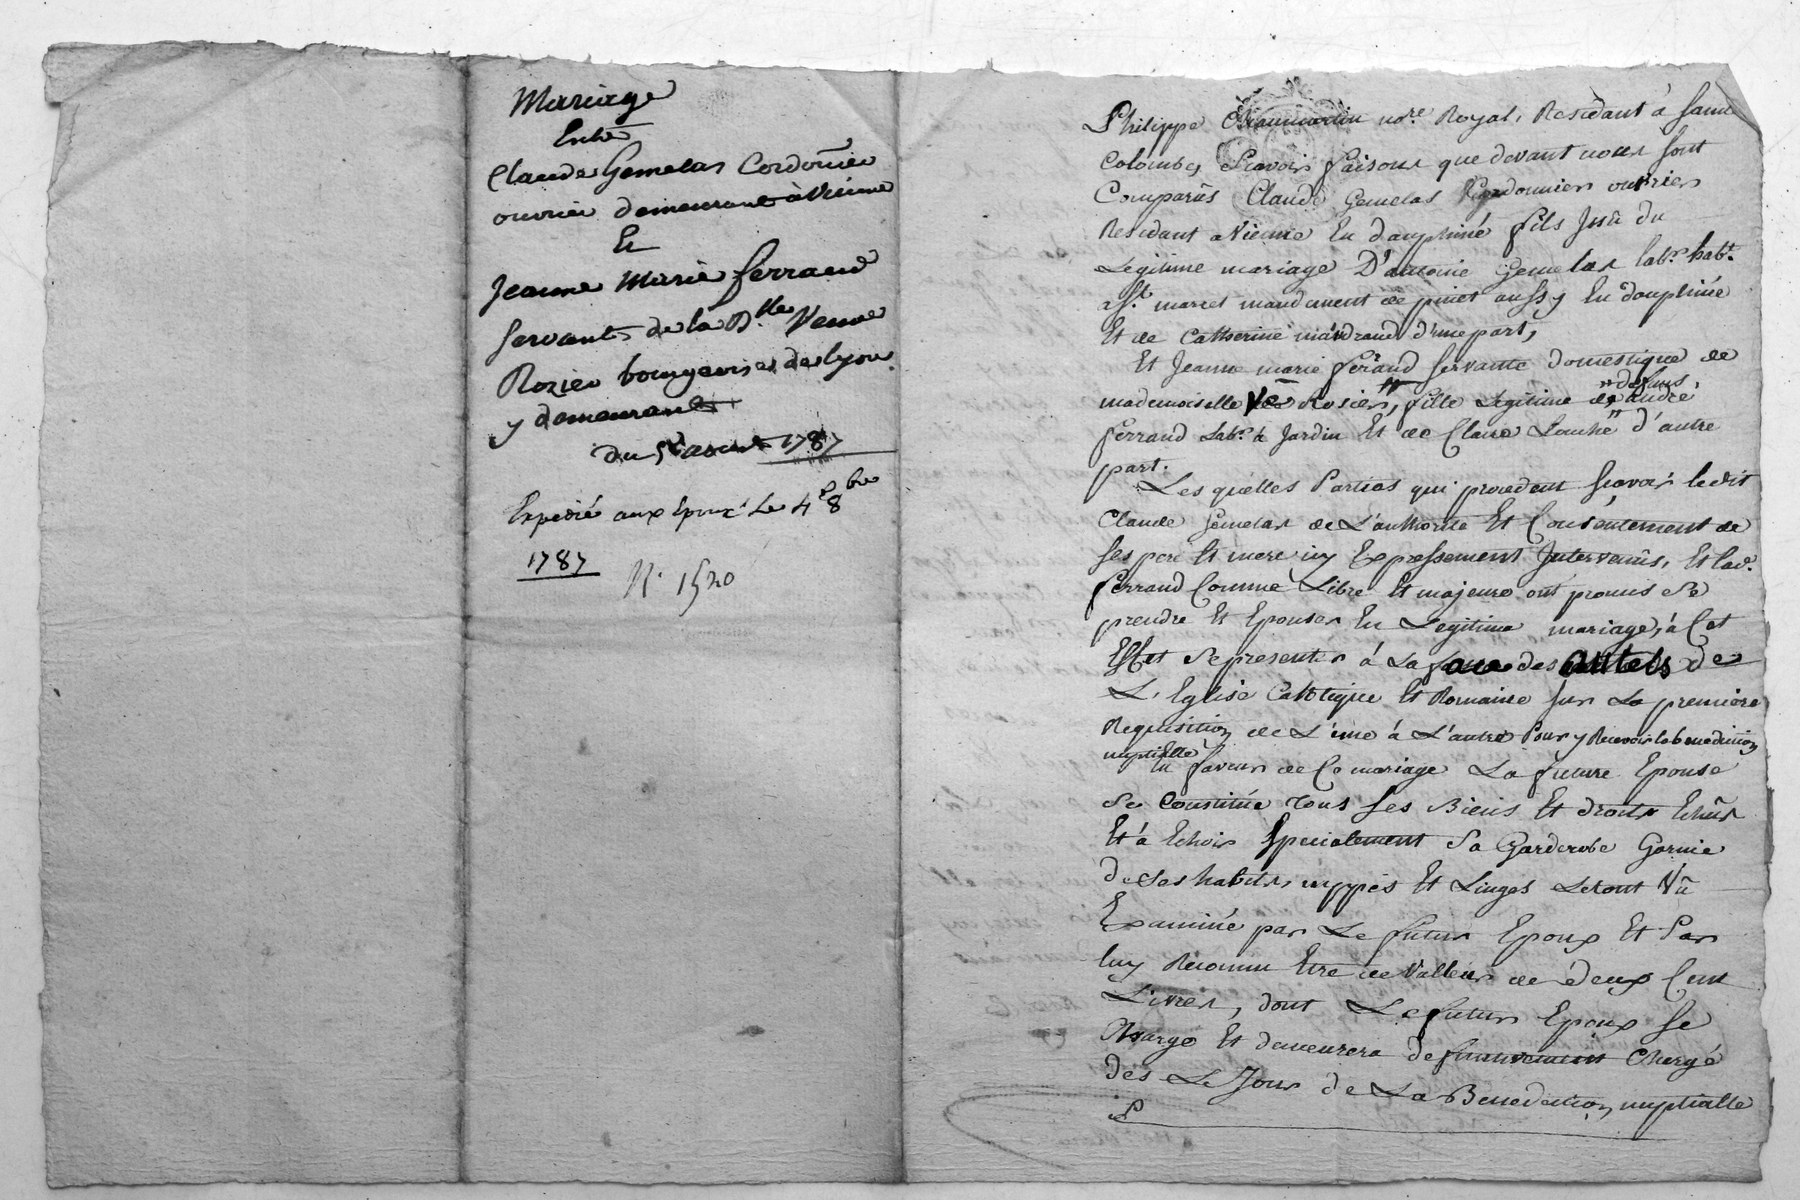 Mariage
Entre
Claude Gemelas Cordonnier
ouvrier demeurant à Vienne
Et
Jeanne Marie ferrand
servante de la Dlle Veuve
Rozier bourgeoise de lyon
y demeurant
du 5e aoust 1787
Expedié aux Epoux Le 4e 8bre
1787
N. 1520
Philippe nore. Royal, Residant à sainte
Colombe, Scavoir faisons que devant nous sont
Comparûs Claude Gemelas Cordonnier ouvrier
Residant a Vienne En dauphiné fils Issû du
Legitime mariage D'antoine Gemelas labr. habt.
a St. marcel mandement de pinet aussy En dauphinée
Et de Catherine mandrand d'une part,
Et Jeanne marie ferand servante domestique de
mademoiselle Ve Rosier, fille Legitime de andré
defunt
ferrand Labr. à Jardin Et de Claire Louche d'autre
part.
Les quelles Parties qui procedent scavoir ledit
Claude Gemelas de L'authorité Et Consentement de
ses pere Et mere icy Expressement Intervenûs, Et lad.
ferrand Comme Libre Et majeure ont promis se
prendre Et Epouser En Legitime mariage, à Cet
Effet se presenter à La face des autels de
L'Eglise Catholique Et Romaine sur La premiere
Requisition de L'une à L'autre Pour y Recevoir la benediction
nuptialle
En faveur de Ce mariage La future Epouse
se Constitüe tous ses Biens Et droits Echûs
Et à Echoir specialement sa Garderobe Garnie
de ses habits, nippes Et Linges Letout Vû
Examiné par Le futur Epoux Et Par
luy Reconnu Etre de Valleur de deux Cent
Livres, dont Le futur Epoux se
Charge Et demeurera definitivement Chargé
des Le Jour de La Benediction nuptialle